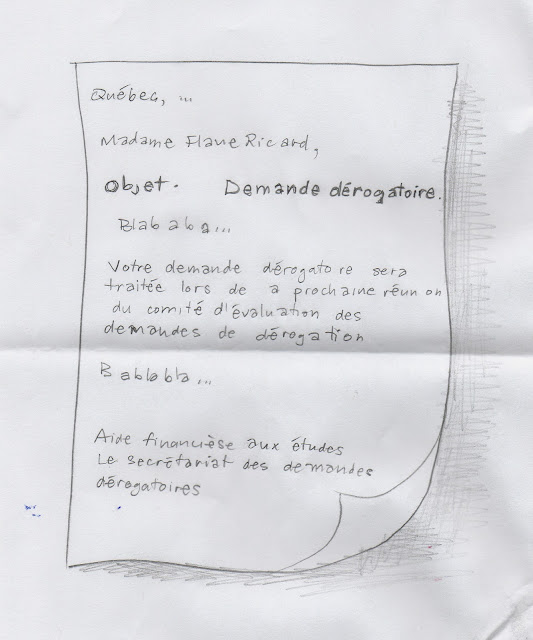 Québec, ...
Madame Flave Ricard,
Objet. Demande dérogatoire.
Blab ab a...
Votre demande dérogato re sera
traitée lors de a prochaine réun on
du comité d'évaluation des
demandes de dérogation
B ablabla...
Aide financièse aux études
Le secrétariat des demandes
dérogatoires